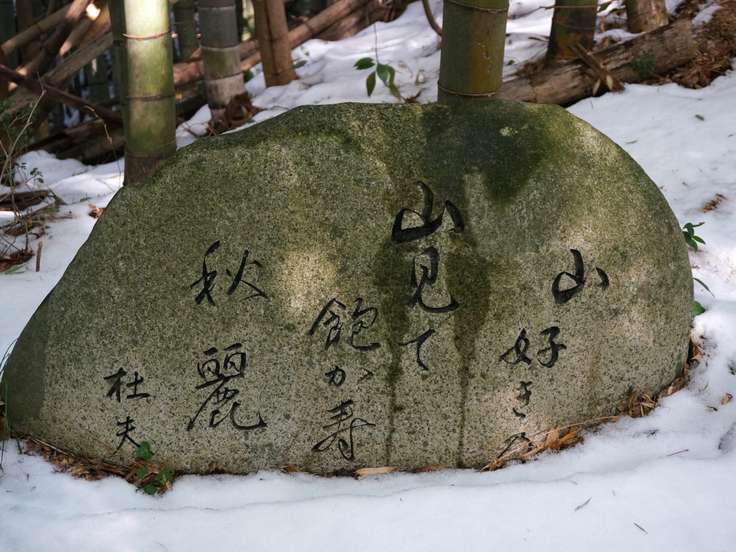 山好きの
山見て
飽か寿
秋麗
杜夫